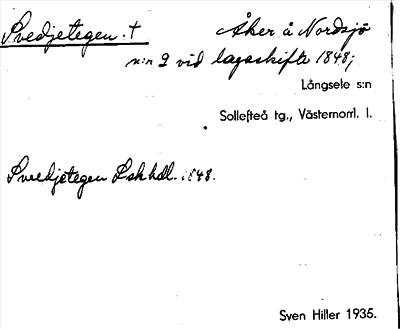 Svedjetegen. † Åker å Nordsjö
n:n 2 vid lagaskifte 1848;
Långsele s:n
Sollefteå tg., Västernorrl. l.
Svedjetegen Lskhdl. 1848.
Sven Hiller 1935.